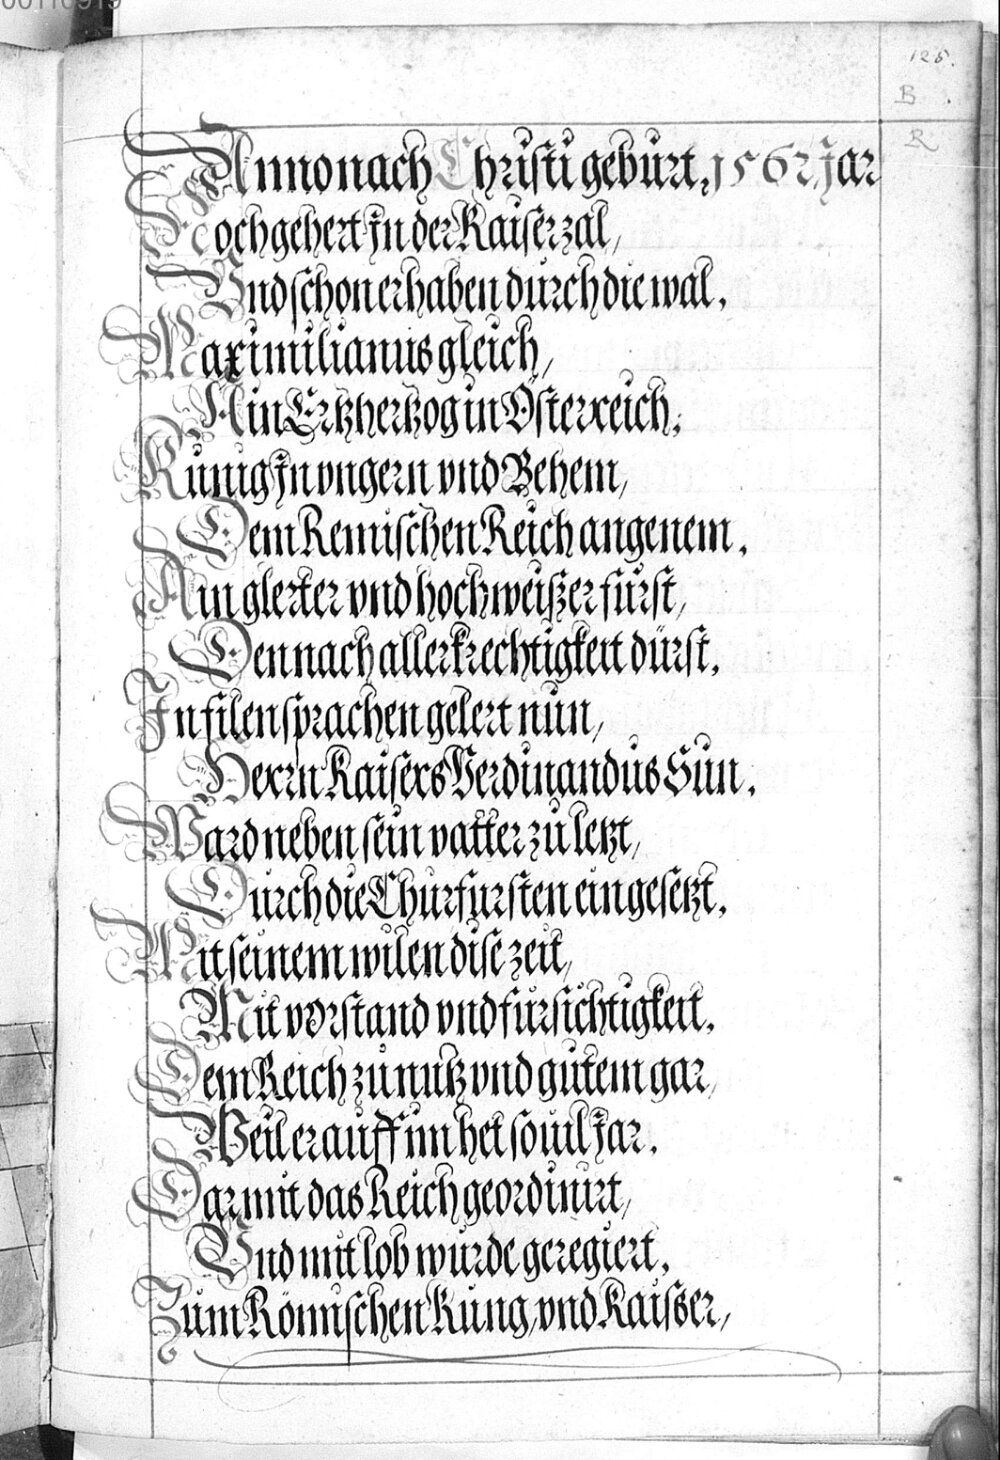 00110919
125.
B
R
Anno nach Christi geburt, 1562 Jar
Hochgehert In der Kaiser zal,
Vnd schon erhaben durch die wal,
Maximilianus gleich,
Ain Ertzhertzog in Österreich,
Kunig In vngern vnd Behem,
Dem Remischen Reich angenem,
Ain glerter vnd hochweißer fürst,
Den nach aller krechtigkeit dürst,
In filen sprachen gelert nun,
Herrn Kaisers Verdinandus Sun,
Ward neben sein vatter zu letzt,
Durch die Churfursten ein gesetzt,
Mit seinem wilen dise zeit,
Mit vorstand vnd fürsichtigkeit,
Dem Reich zu nutz vnd gutem gar,
Weil er auff im het so uil Jar,
Darmit das Reich geordinirt,
Vnd mit lob wurde geregiert,
Zum Römischen Kung, vnd Kaisser,